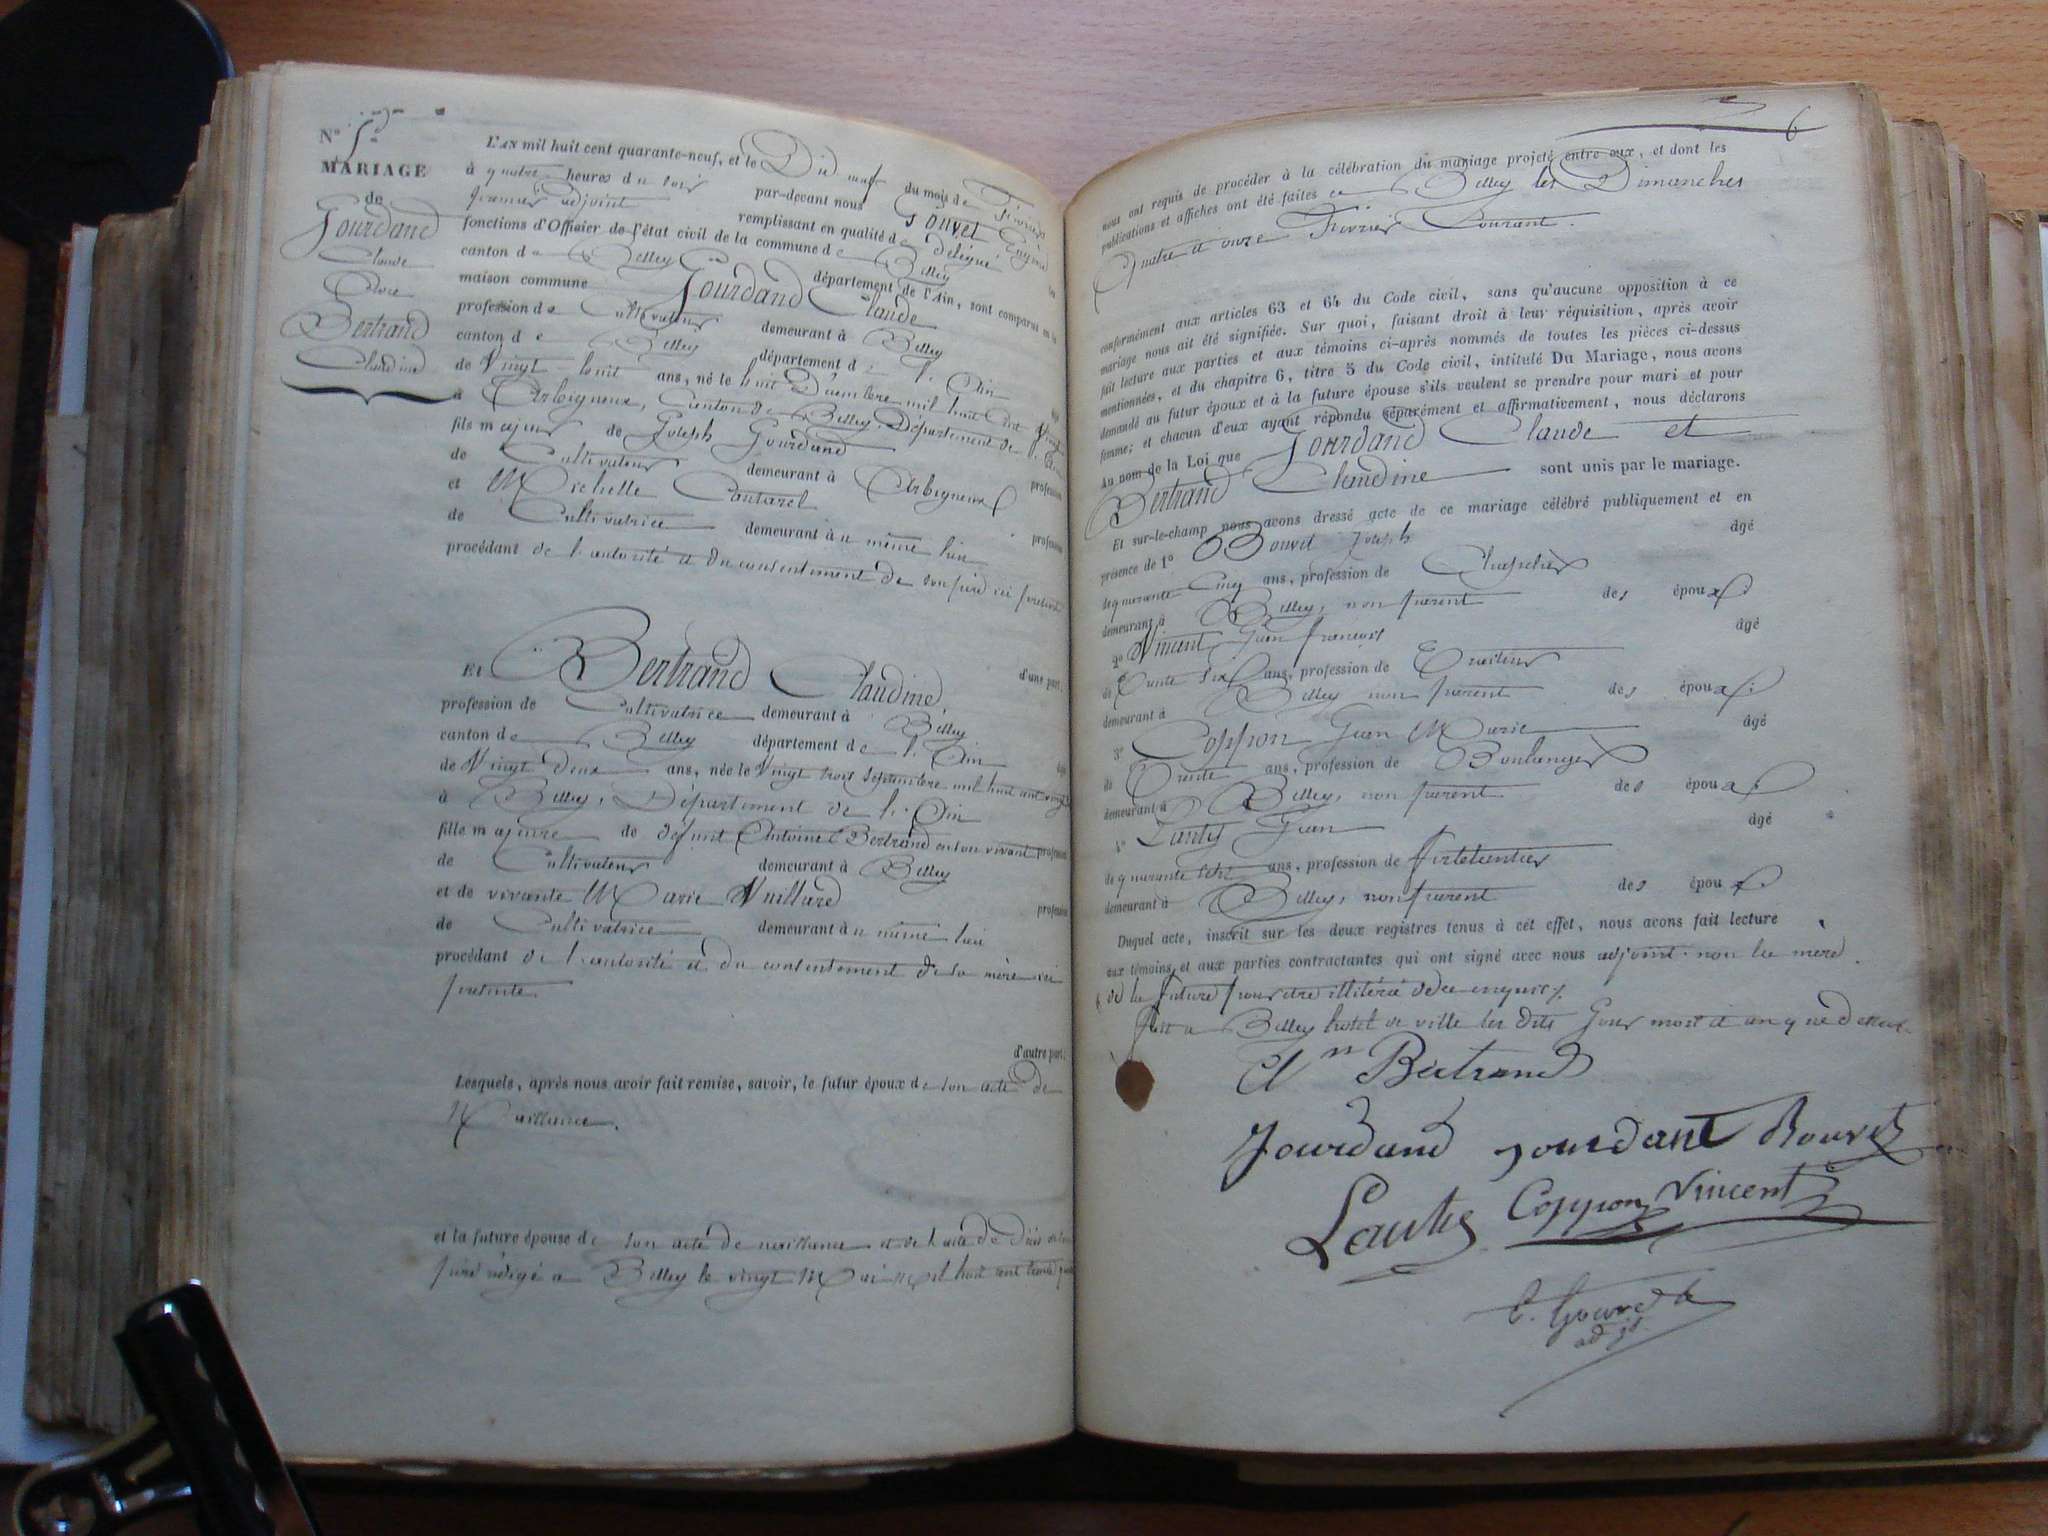 N° 5
MARIAGE
de
Jourdand
Claude
avec
Bertrand
Claudine
L'AN mil huit cent quarante-neuf, et le Dix neuf du mois de Février
à quatre heures du soir par-devant nous Gouvet Eugène
premier adjoint remplissant en qualité de délégué les
fonctions d'Officier de l'état civil de la commune de Belley
canton de Belley département de l'Ain, sont comparus en la
maison commune Jourdand Claude
profession de Cultivateur demeurant à Belley
canton de Belley département de l'Ain âgé
de Vingt huit ans, né le huit Décembre mil huit Cent Vingt
à Arbignieux, Canton de Belley, Département de l'Ain
fils majeur de Joseph Jourdand profession
de Cultivateur demeurant à Arbignieux
et Michelle profession
de Cultivatrice demeurant au même lieu
procédant de l'autorité et du consentement de son père ici présent
d'une part.
Et Bertrand Claudine,
profession de Cultivatrice demeurant à Belley
canton de Belley département de l'Ain âgée
de Vingt deux ans, née le Vingt trois Septembre mil huit cent vingt
à Belley, Département de l'Ain
fille majeure de défunt Antoine Bertrand en son vivant profession
de Cultivateur demeurant à Belley
et de vivante Marie Vuillard profession
de Cultivatrice demeurant au même lieu
procédant de l'autorité et du consentement de sa mère ici
présente
d'autre part.
Lesquels, après nous avoir fait remise, savoir, le futur époux de son acte de
Naissance.
et la future épouse de son acte de naissance et de l'acte de Décès de son
père rédigé à Belley le vingt Mai Mil huit cent trente
6
nous ont requis de procéder à la célébration du mariage projeté entre eux, et dont les
publications et affiches ont été faites à Belley les Dimanches
Quatre et onze Février Courant.
conformément aux articles 63 et 64 du Code civil, sans qu'aucune opposition à ce
mariage nous ait été signifiée. Sur quoi, faisant droit à leur réquisition, après avoir
fait lecture aux parties et aux témoins ci-après nommés de toutes les pièces ci-dessus
mentionnées, et du chapitre 6, titre 5 du Code civil, intitulé Du Mariage, nous avons
demandé au futur époux et à la future épouse s'ils veulent se prendre pour mari et pour
femme; et chacun d'eux ayant répondu séparément et affirmativement, nous déclarons
Au nom de la Loi que Jourdand Claude et
Bertrand Claudine sont unis par le mariage.
Et sur-le-champ nous avons dressé acte de ce mariage célébré publiquement et en
présence de 1° Bouvet Joseph âgé
de quarante Cinq ans, profession de Chapelier
demeurant à Belley, non parent des époux
2° Vincent Jean françois âgé
de Trente six ans, profession de Traiteur
demeurant à Belley non parent des époux
3° Coppon Jean Marie âgé
de Trente ans, profession de Boulanger
demeurant à Belley, non parent des époux
4° Lautés Jean âgé
de quarante ans, profession de ferblantier
demeurant à Belley, non parent des époux
Duquel acte, inscrit sur les deux registres tenus à cet effet, nous avons fait lecture
aux témoins et aux parties contractantes qui ont signé avec nous adjoint, non la mère
de la future pour être illitérée de ce enquise.
fait à Belley hotel de ville les dits Jour mois et an que dessus.
Cl ne Bertrand
Jourdand Jourdant Bouvet
Lautés Coppon Vincent
E. Gouvet
adjt.